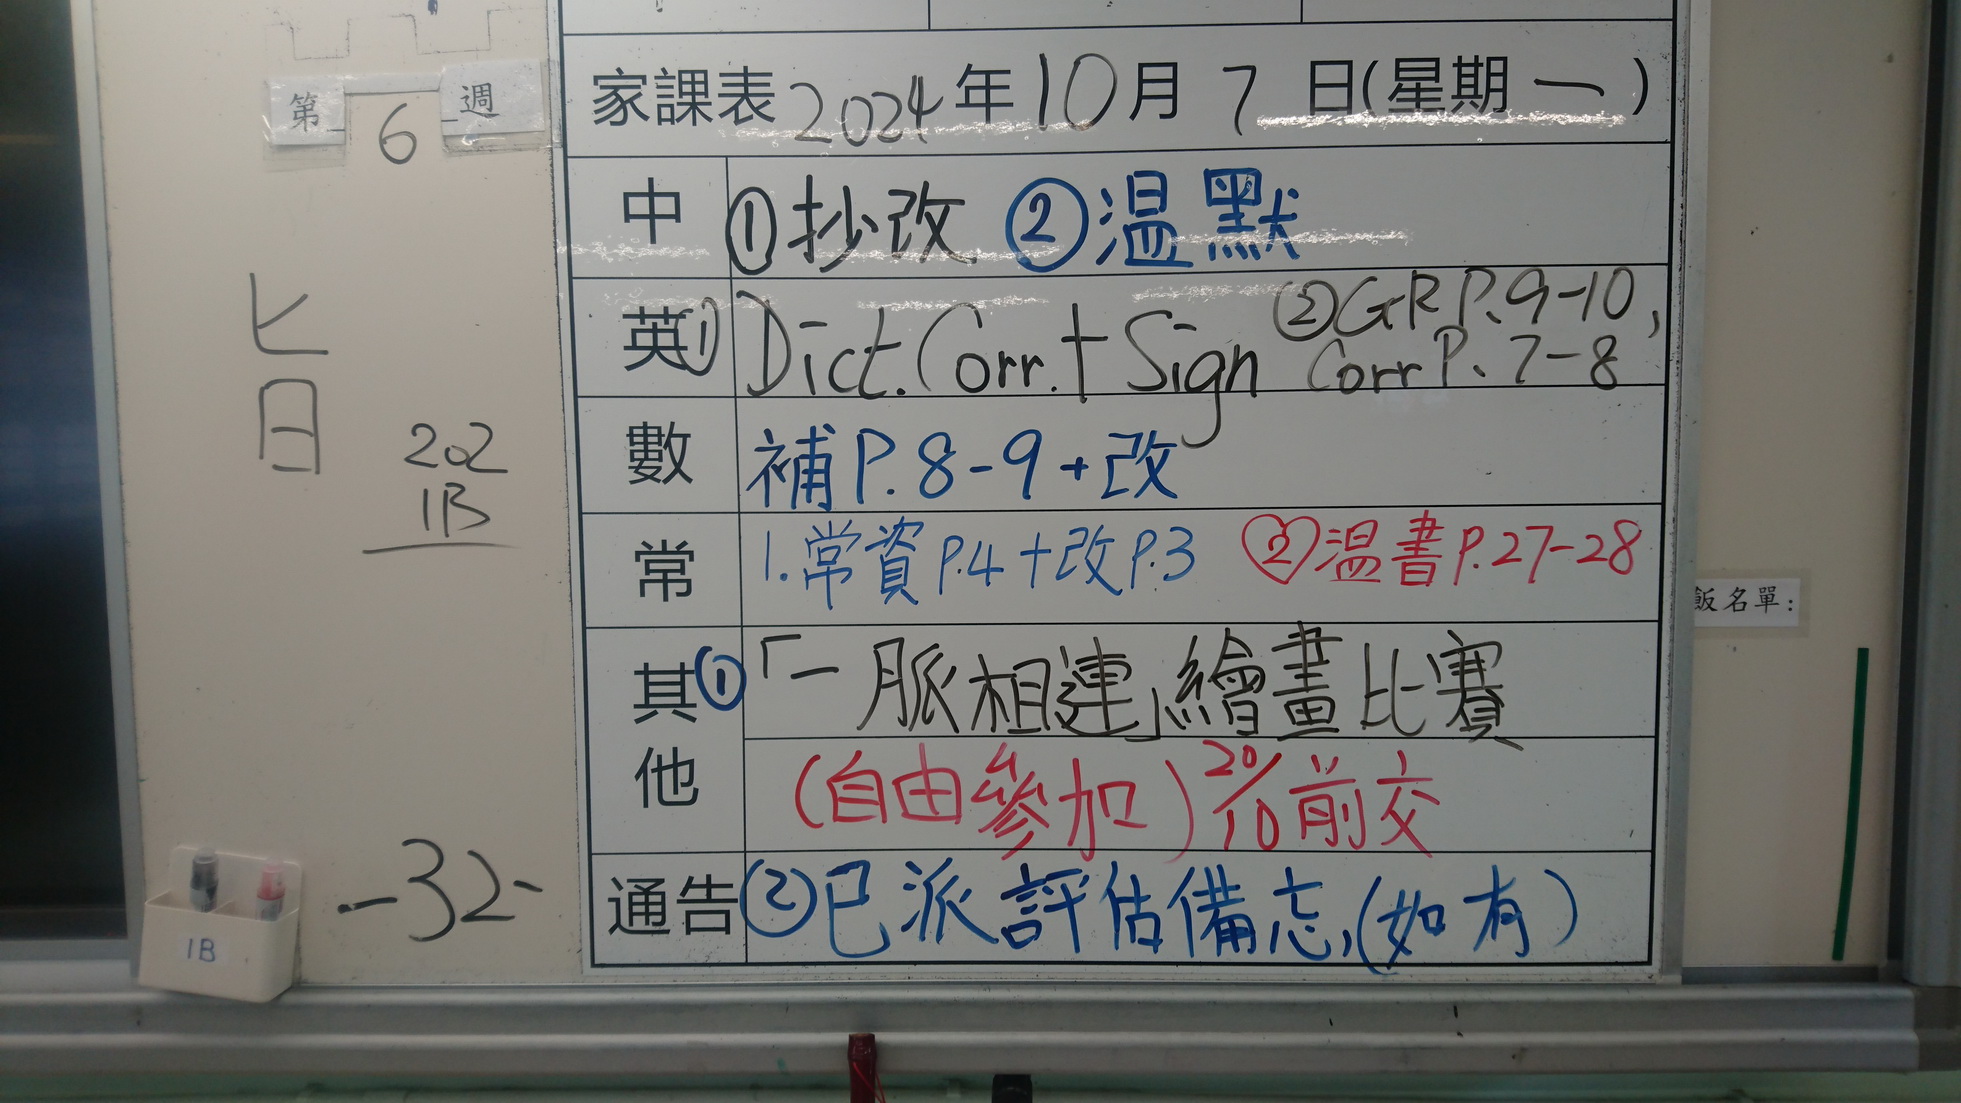 第6週
家課表2024年10月7日(星期一)
中 ①抄改 ②温默
英 ① Dict. Corr. + Sign ②GR P.9-10,
Corr P. 7-8
數 補P.8-9+改
常 1.常資P.4+改P.3 ②温書P.27-28
其他 ①「一脈相連」繪畫比賽
(自由參加) 20/10前交
通告 ②已派評估備忘,(如有)
匕
日
202
1B
-32-
1B
飯名單: